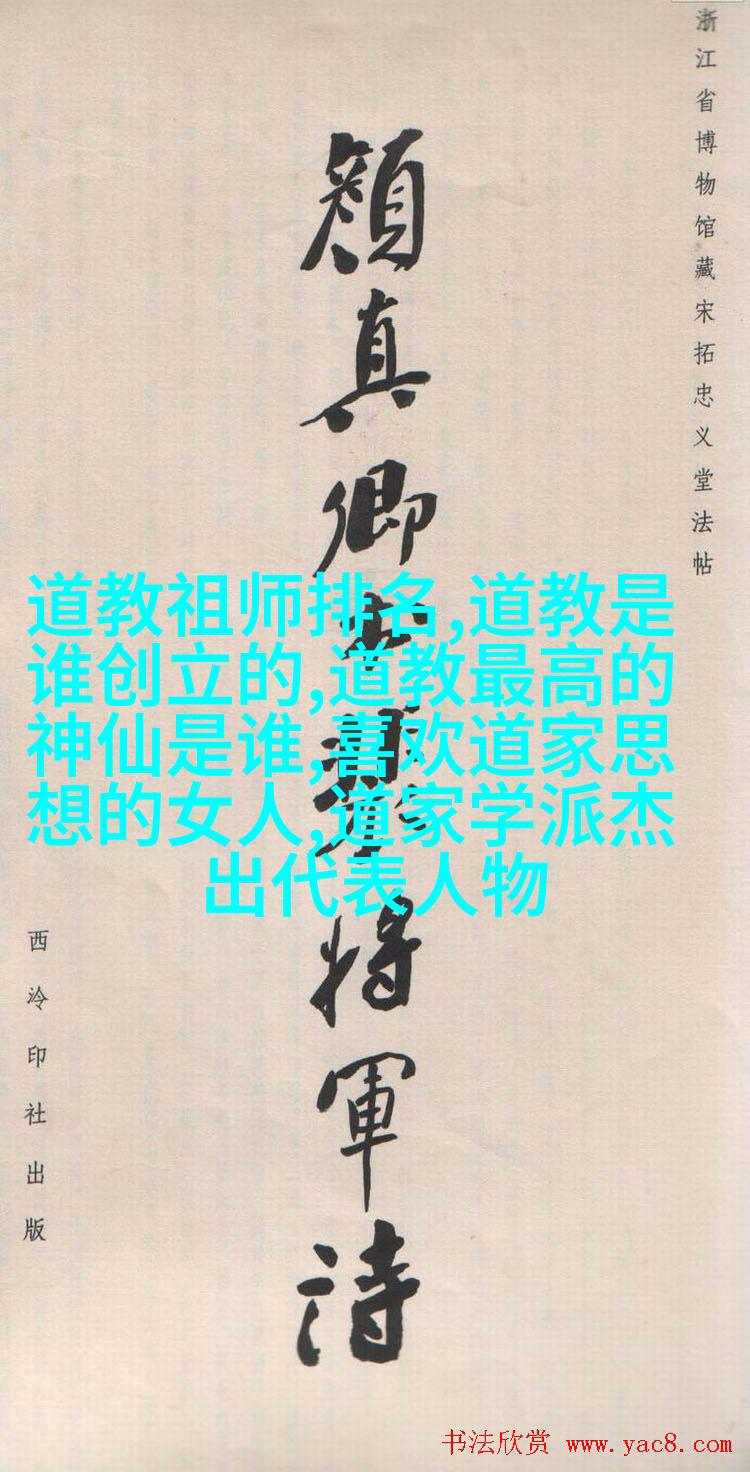 浙江省博物馆藏宋拓忠义堂法帖
顏真卿將軍詩
西泠印社出版
道教祖师排名,道教是
谁创立的,道教最高的
神仙是谁,喜欢道家思
想的女人,道家学派杰
出代表人物
书法欣赏 www.yac8.com